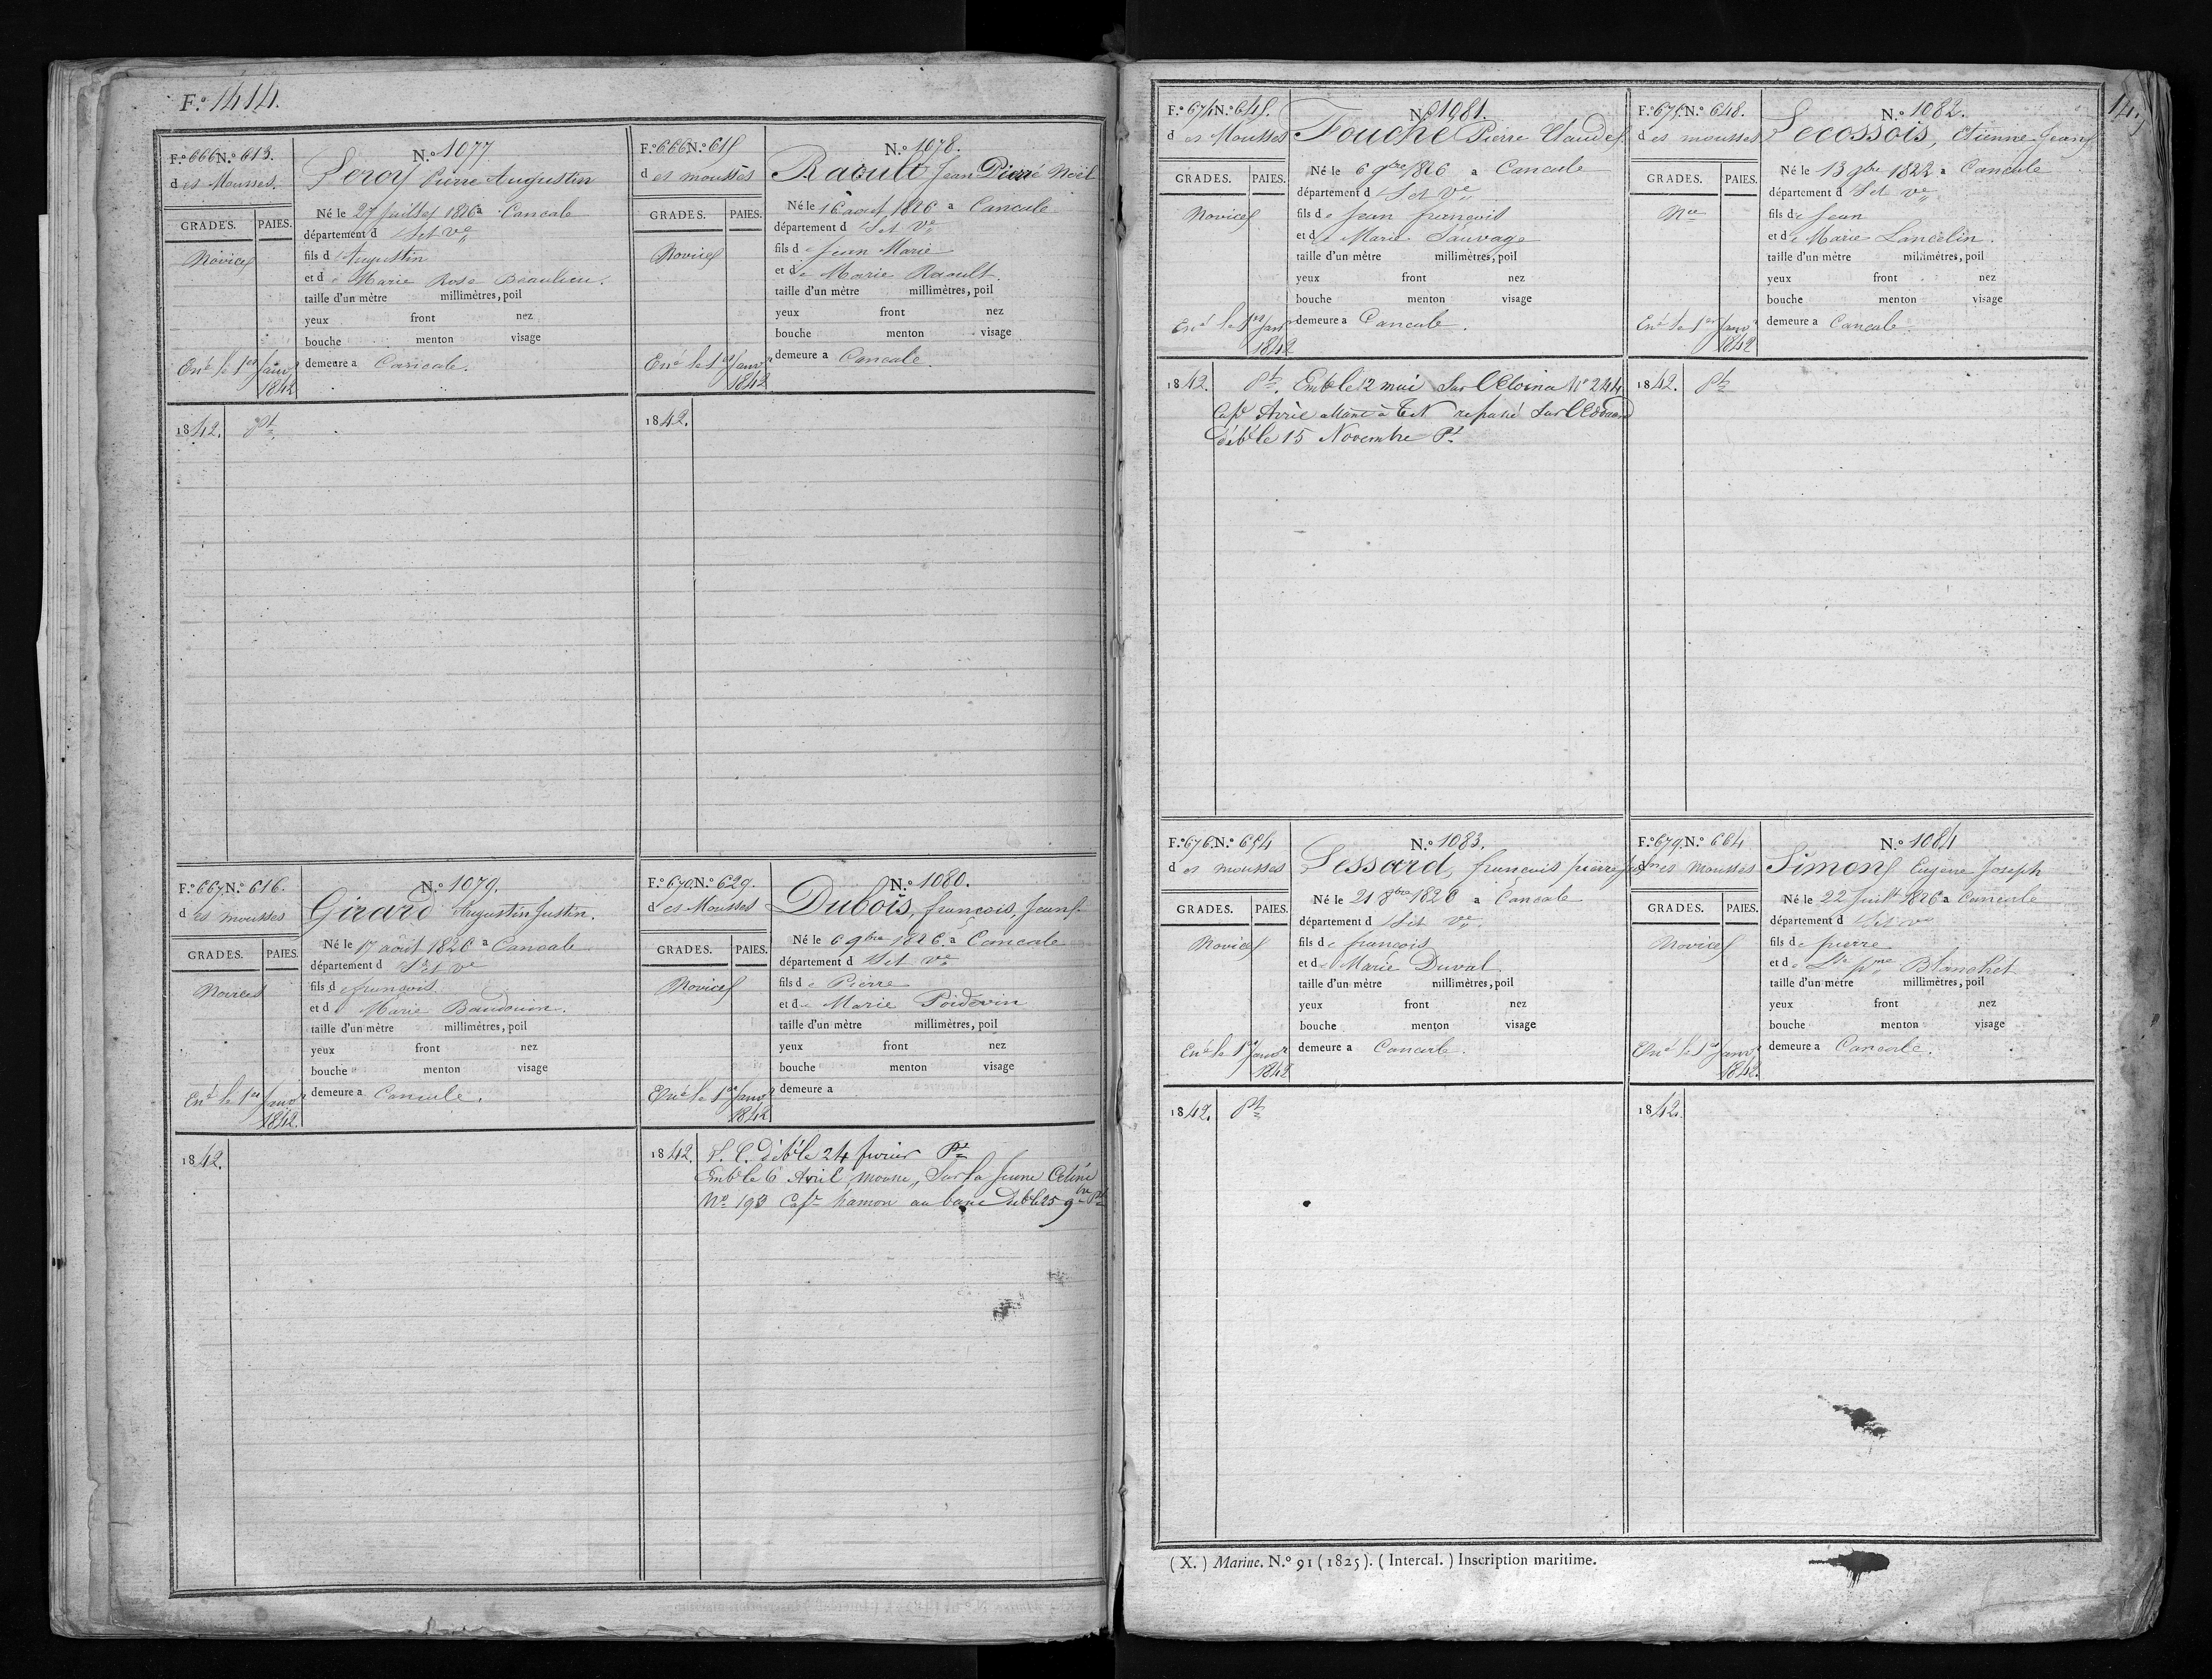 F.º 1414.
F.º 666 N.º 613.
des Mousses.
N.º 1077
Leroy Pierre Augustin
GRADES. PAIES.
Novice
Né le 27 juillet 1826 a Cancale
département d
fils d Augustin
et de Marie Rose Beaulieu.
taille d'un mètre millimètres, poil
yeux front nez
bouche menton visage
demeure a Cancale.
le 1er Janvr
1842
1842. Pt
F.º 666 N.º 615
des mousses
N.º 1078.
Raoult Jean Pierre Noël
GRADES. PAIES.
Novice
Né le 16 aout 1826 a Cancale
département d
fils de Jean Marie
et de Marie Raoult.
taille d'un mètre millimètres, poil
yeux front nez
bouche menton visage
demeure a Cancale.
le 1er Janvr
1842
1842.
F.º 667 N.º 616.
des mousses
N.º 1079.
Girard Augustin Justin.
GRADES. PAIES.
Novice
Né le 17 août 1826 a Cancale
département d
fils de francois.
et de Marie Baudouin.
taille d'un mètre millimètres, poil
yeux front nez
bouche menton visage
demeure a Cancale.
le 1er Janvr
1842.
1842.
F.º 670 N.º 629.
des Mousses
N.º 1080.
Dubois, françois, Jean
GRADES. PAIES.
Novice
Né le 6 9bre 1826. a Cancale
département d
fils de Pierre
et de Marie Poidevin
taille d'un mètre millimètres, poil
yeux front nez
bouche menton visage
demeure a
le 1er Janvr
1842
1842. P. C. déble 24 fevrier Pt
Emb le 6 Avril, mousse, Sur la Jeune Celine
Nº 193 Capne hamon au banc deb le 25 9bre Pt
F.º 674 N.º 645.
des Mousses
N.º 1081.
Fouché Pierre Claude
GRADES. PAIES.
Novice
Né le 6 9bre 1826 a Cancale
département d
fils de Jean françois
et de Marie Sauvage
taille d'un mètre millimètres, poil
yeux front nez
bouche menton visage
demeure a Cancale.
le 1er Janvr
1842
1842. Pt. Emb le 12 mai Sur l'Eloina Nº 244
Cape Avrie allant à TN repassé Sur l'Edouard
déb le 15 Novembre Pt
F.º 675 N.º 648.
des mousses
N.º 1082.
Lecossois, Etienne Jean
GRADES. PAIES.
Nce
Né le 13 9bre 1822 a Cancale
département d
fils de Jean
et de Marie Lancelin.
taille d'un mètre millimètres, poil
yeux front nez
bouche menton visage
demeure a Cancale.
le 1er Janvr
1842
1842. Pt
F.º 676 N.º 654
des mousses
N.º 1083.
Lessard, françois pierre
GRADES. PAIES.
Novice
Né le 21 8bre 1826 a Cancale
département d
fils de françois
et de Marie Duval
taille d'un mètre millimètres, poil
yeux front nez
bouche menton visage
demeure a Cancale.
le 1er Janvr
1842
1842. Pt
F.º 679 N.º 664
des Mousses
N.º 1084
Simon Eugène Joseph
GRADES. PAIES.
Novice
Né le 22 Juillt 1826 a Cancale
département d
fils de pierre
et de Blanchet
taille d'un mètre millimètres, poil
yeux front nez
bouche menton visage
demeure a Cancale.
le 1er Janvr
1842.
1842.
(X.) Marine. N.º 91 (1825). (Intercal.) Inscription maritime.